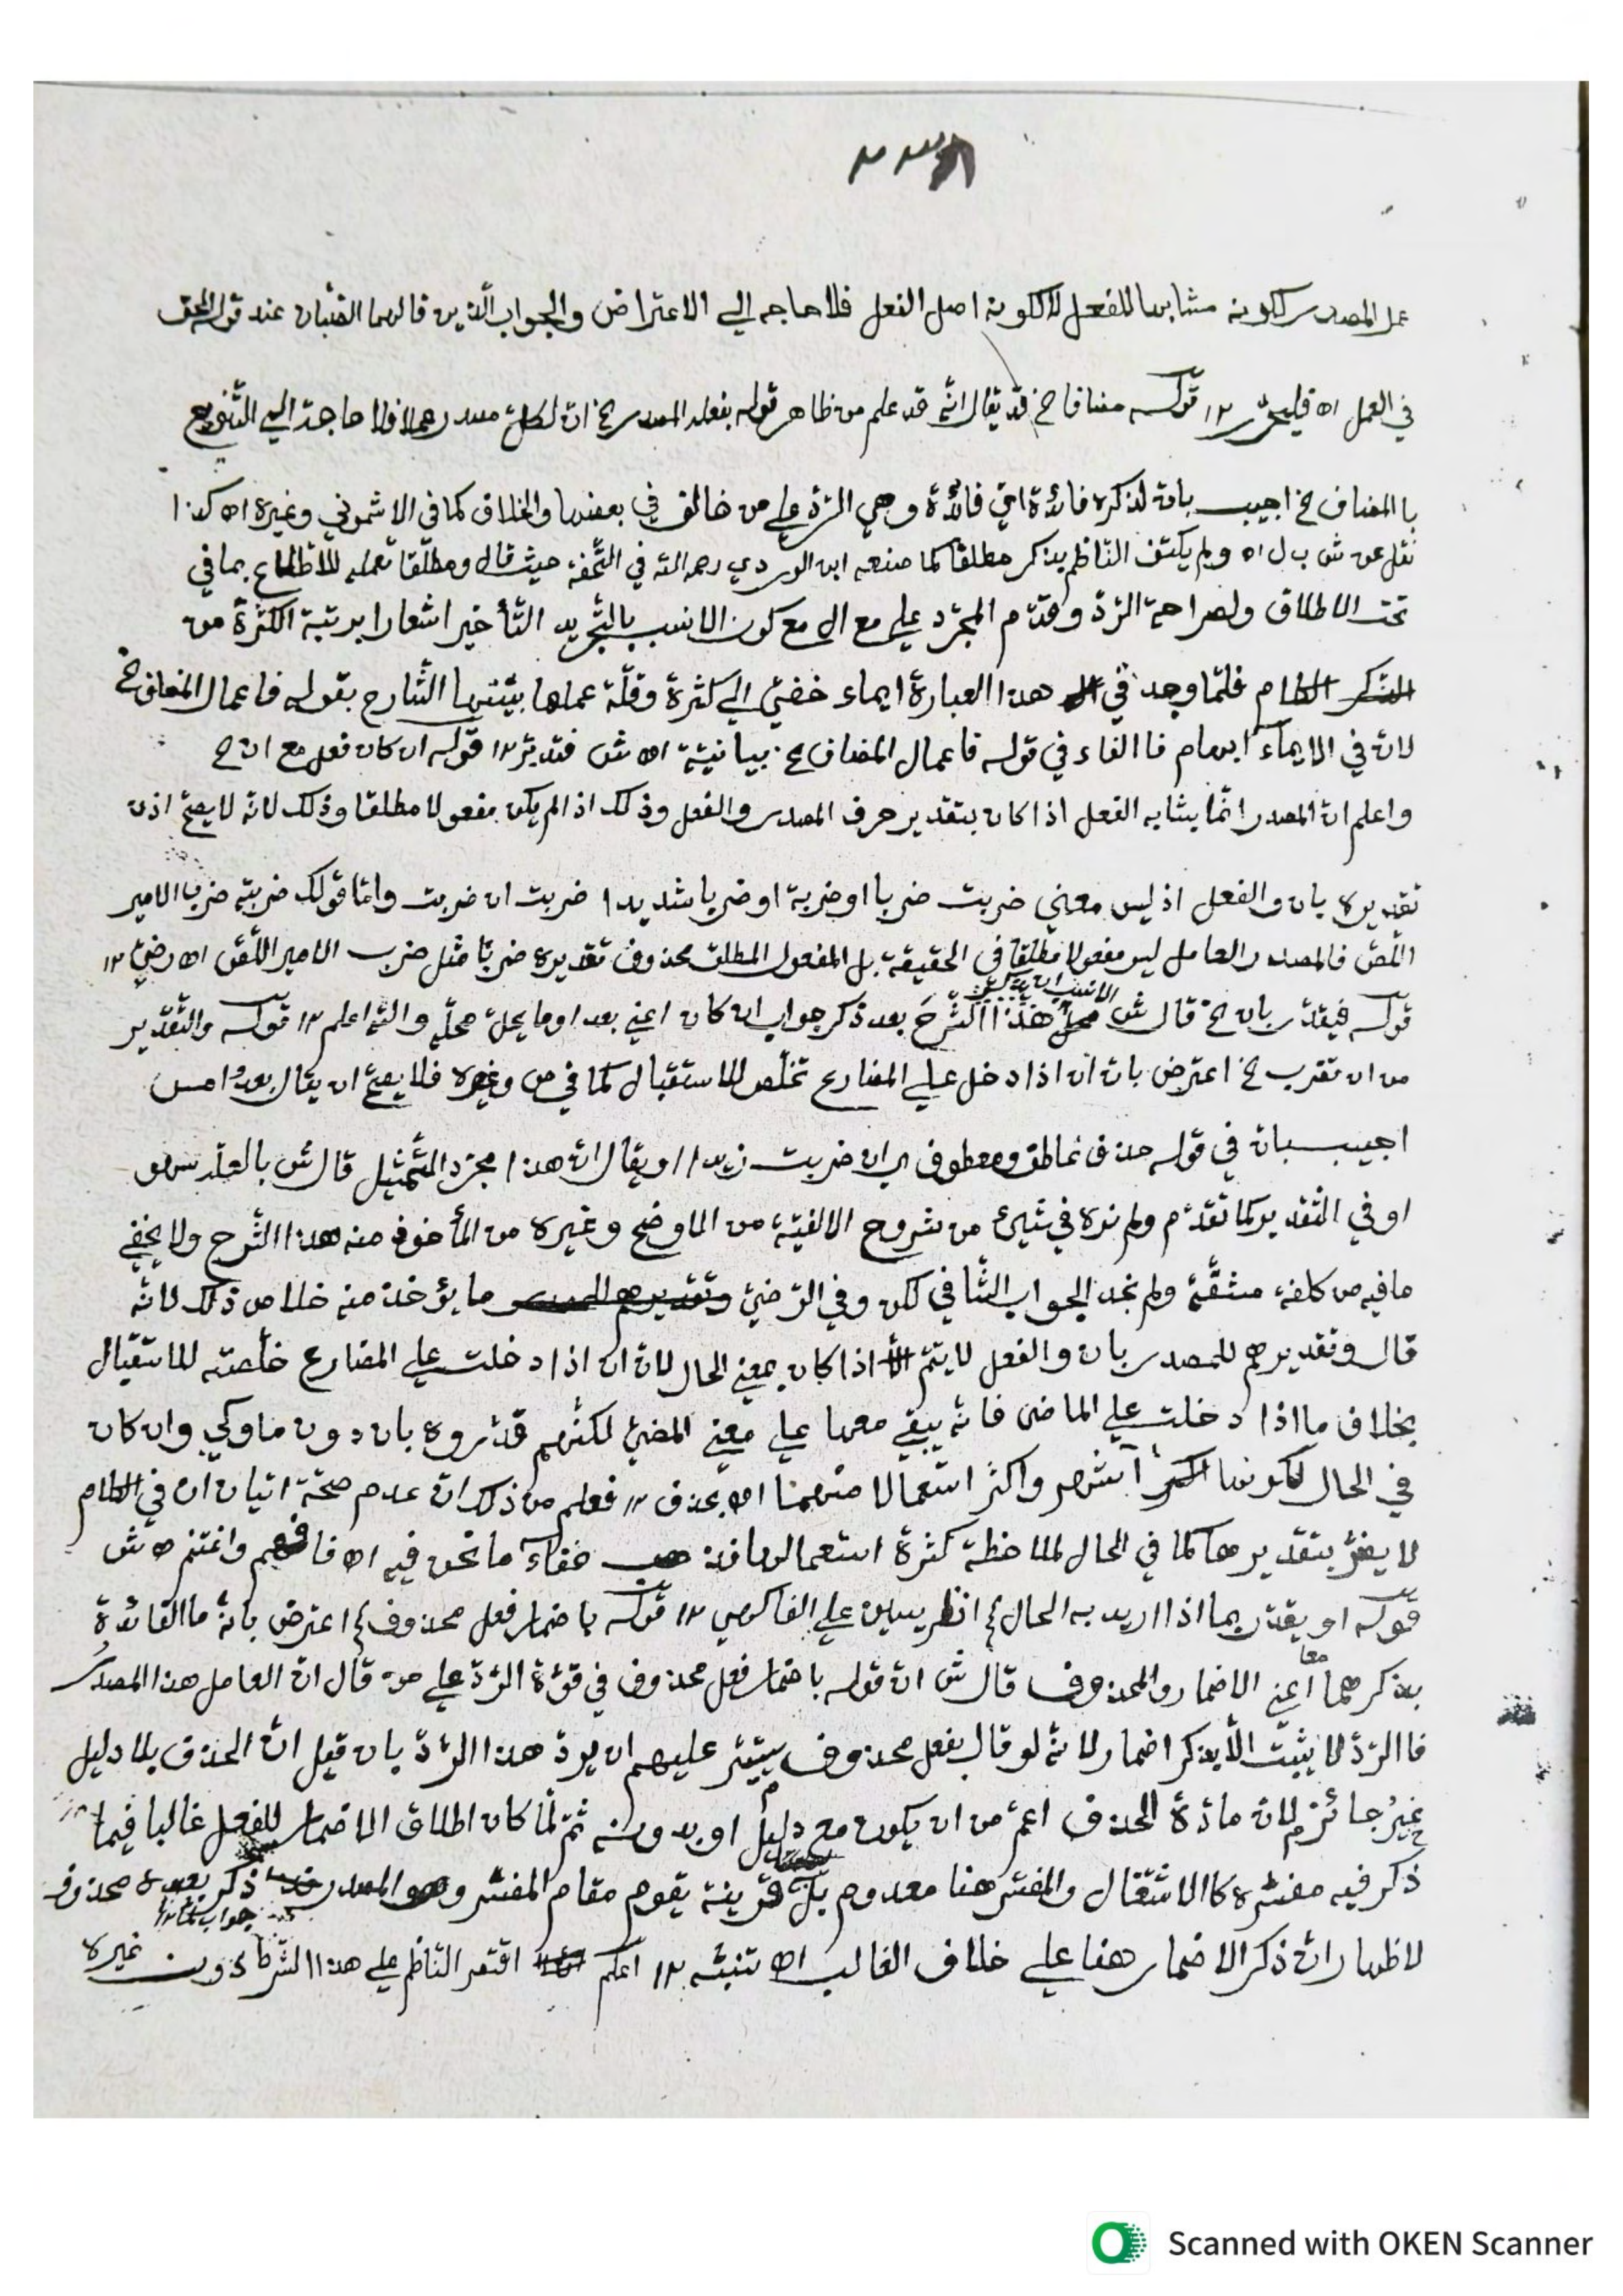 عمل المصدر لكونه مشابها للفعل لا لكونه اصل الفعل فلا حاجه الى الاعتراض والجواب الّذين قالهما الصّبان عند قول المحق
في العمل اه فليحرّر ١٢ قوله مضافا الخ قد يقال انّه قد علم من ظاهر قوله بفعله المصدر الخ انّ لكلّ مصدر عملا فلا حاجة الى التّنويع
با المضاف الخ اجيب بانه لذكره فائدة ايّ فائدة وهي الرّد على من خالف في بعضها والخلاف كما في الاشموني وغيره اه كذا
نقل عن ش ب ل اه ولم يكتف النّاظم بذكر مطلقا كما صنعه ابن الوردي رحمه الله في التّحفة حيث قال ومطلقا تعمله للاطلاع بما في
تحت الاطلاق ولصراحة الرّدّ وقدّم المجرّد على مع ال مع كون الانسب بالتّجريد التّأخير اشعارا برتبة الكثرة من
فلمّا وجد في هذا العبارة ايماء خفيّ الى كثرة وقلّة عملها بيّنها الشّارح بقوله فاعمال المضاف الخ
لانّ في الايماء ابهام فا الفاء في قوله فاعمال المضاف الخ بيانيّة اه ش فتدبّر ١٢ قوله ان كان فعل مع ان الخ
واعلم انّ المصدر انّما يشابه الفعل اذا كان بتقدير حرف المصدر والفعل وذلك اذا لم يكن مفعولا مطلقا وذلك لانّه لا يصحّ اذن
تقديره بان والفعل اذ ليس معنى ضربت ضربا او ضربة او ضربا شديدا ضربت ان ضربت وامّا قولك ضربته ضرب الامير
اللّصّ فالمصدر العامل ليس مفعولا مطلقا في الحقيقة بل المفعول المطلق محذوف تقديره ضربا مثل ضرب الامير اللّصّ اه رضيّ ١٢
قوله فيقدّر بان الخ قال ش هذا الشّرح بعد ذكر جواب ان كان اعني بعد او ما يحلّ محلّه والله اعلم ١٢ قوله والتّقدير
من ان تضرب الخ اعترض بانّ ان اذا دخل على المضارع تخلّص للاستقبال كما في ص وغيره فلا يصحّ ان يقال بعده امس
اجيب بانّ في قوله حذف عاطف ومعطوف اي ان ضربت زيدا او يقال انّ هذا مجرّد التّمثيل قال ش بالعلّه سهو
او في التّقدير كما تقدّم ولم نره في شيئ من شروح الالفيّة من الماوضح وغيره من المأخوذ منه هذا الشّرح ولا يخفى
ما فيه من كلفة مشقّة ولم نجد الجواب الشّافي لكن وفي الرّضيّ ما يؤخذ منه خلاص ذلك لانّه
قال وتقديرهم للمصدر بان والفعل لا يتمّ اذا كان بمعنى الحال لانّ ان اذا دخلت على المضارع خلّصته للاستقبال
بخلاف ما اذا دخلت على الماضى فانّه يبقى معها على معنى المضيّ لكنّهم قدّروه بان دون ما وكي وان كان
في الحال لكونها اشهر واكثر استعمالا منهما اه بحذف ١٢ فعلم من ذلك انّ عدم صحّة اتيان ان في الكلام
لا يضرّ بتقديرها كما في الحال لملاحظة كثرة استعمالها خفاء ما نحن فيه اه فافهم واغتنم ه ش
قوله او يقدّر بما اذا اريد به الحال الخ انظر يسين على الفاكهي ١٢ قوله باضمار فعل محذوف الخ اعترض بانّه ما الفائدة
بذكرهما معا اعني الاضمار والمحذوف قال ش انّ قوله باضمار فعل محذوف في قوّة الرّدّ على من قال انّ العامل هذا المصدر
فا الرّدّ لا يثبت الّا بذكر اضمار لانّه لو قال بفعل محذوف يتيسّر عليهم ان يردّ هذا الرّدّ بان قيل انّ الحذف بلا دليل
غير جائز لانّ مادّة الحذف اعمّ من ان يكون مع دليل او بدونه ثمّ لمّا كان اطلاق الاضمار للفعل غالبا فيما
ذكر فيه مفسّره كا الاشتغال والمفسّر هنا معدوم بل قرينة يقوم مقام المفسّر وهو المصدر ذكر بعده محذوف
جواب لمّا ١٢
لاظهار انّ ذكر الاضمار هنا على خلاف الغالب اه تنبّه ١٢ اعلم اقتصر النّاظم على هذا الشّرط دون غيره
Scanned with OKEN Scanner